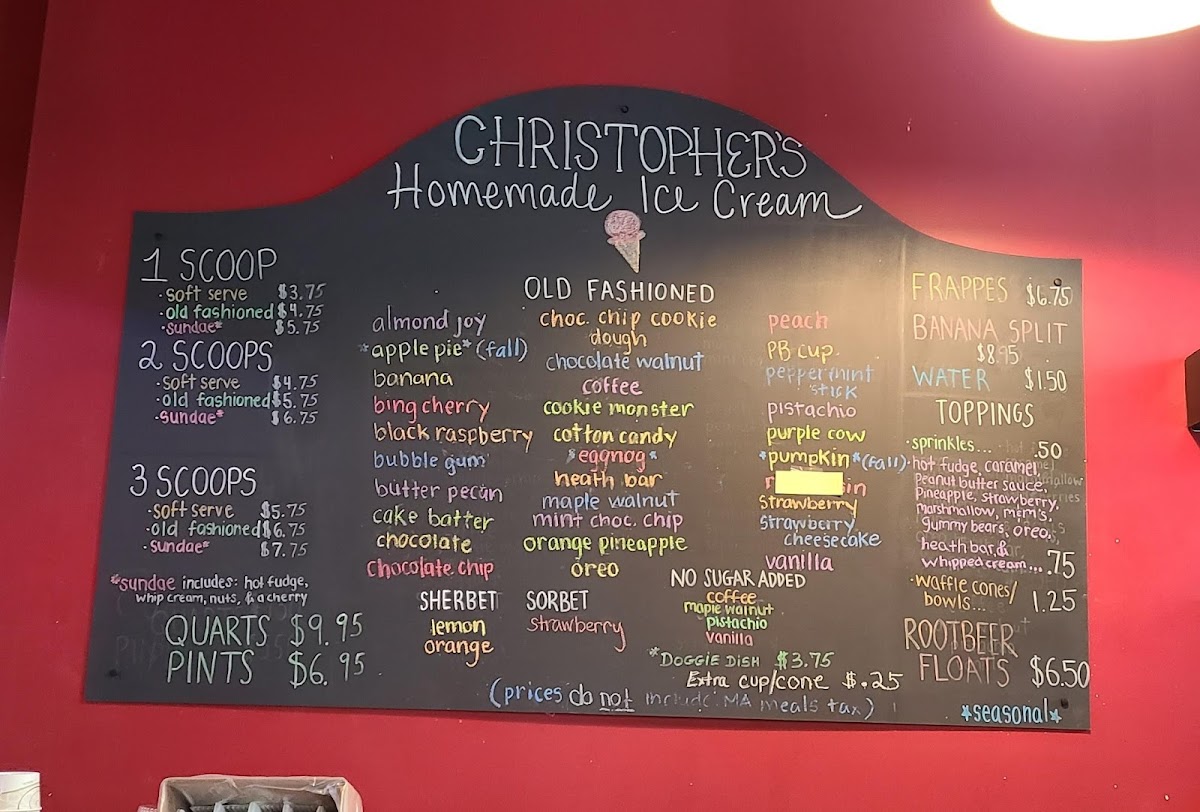 CHRISTOPHER'S
Homemade Ice Cream
1 SCOOP
·soft serve $3.75
·old fashioned $4.75
·sundae* $5.75
2 SCOOPS
·soft serve $4.75
·old fashioned $5.75
·sundae* $6.75
3 SCOOPS
·soft serve $5.75
·old fashioned $6.75
·sundae* $7.75
*sundae includes: hot fudge,
whip cream, nuts, & a cherry
QUARTS $9.95
PINTS $6.95
OLD FASHIONED
almond joy
*apple pie* (fall)
banana
bing cherry
black raspberry
bubble gum
butter pecan
cake batter
chocolate
chocolate chip
choc. chip cookie
dough
chocolate walnut
coffee
cookie monster
cotton candy
*eggnog*
heath bar
maple walnut
mint choc. chip
orange pineapple
oreo
peach
PB cup
peppermint
stick
pistachio
purple cow
*pumpkin* (fall)
strawberry
strawberry
cheesecake
vanilla
SHERBET
lemon
orange
SORBET
strawberry
NO SUGAR ADDED
coffee
maple walnut
pistachio
vanilla
*DOGGIE DISH $3.75
Extra cup/cone $.25
(prices do not include MA meals tax)
FRAPPES $6.75
BANANA SPLIT
$8.95
WATER $1.50
TOPPINGS
·sprinkles... .50
·hot fudge, caramel,
peanut butter sauce,
pineapple, strawberry,
marshmallow, m+m's,
gummy bears, oreo,
heath bar, &
whipped cream... .75
·waffle cones/
bowls... 1.25
ROOTBEER
FLOATS $6.50
*seasonal*